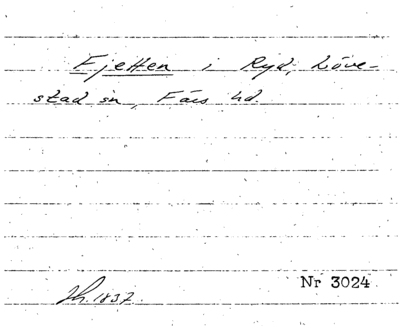 Fjetten i Ryd, Löve-
stad sn, Färs hd.
Nr 3024
Th. 1837.